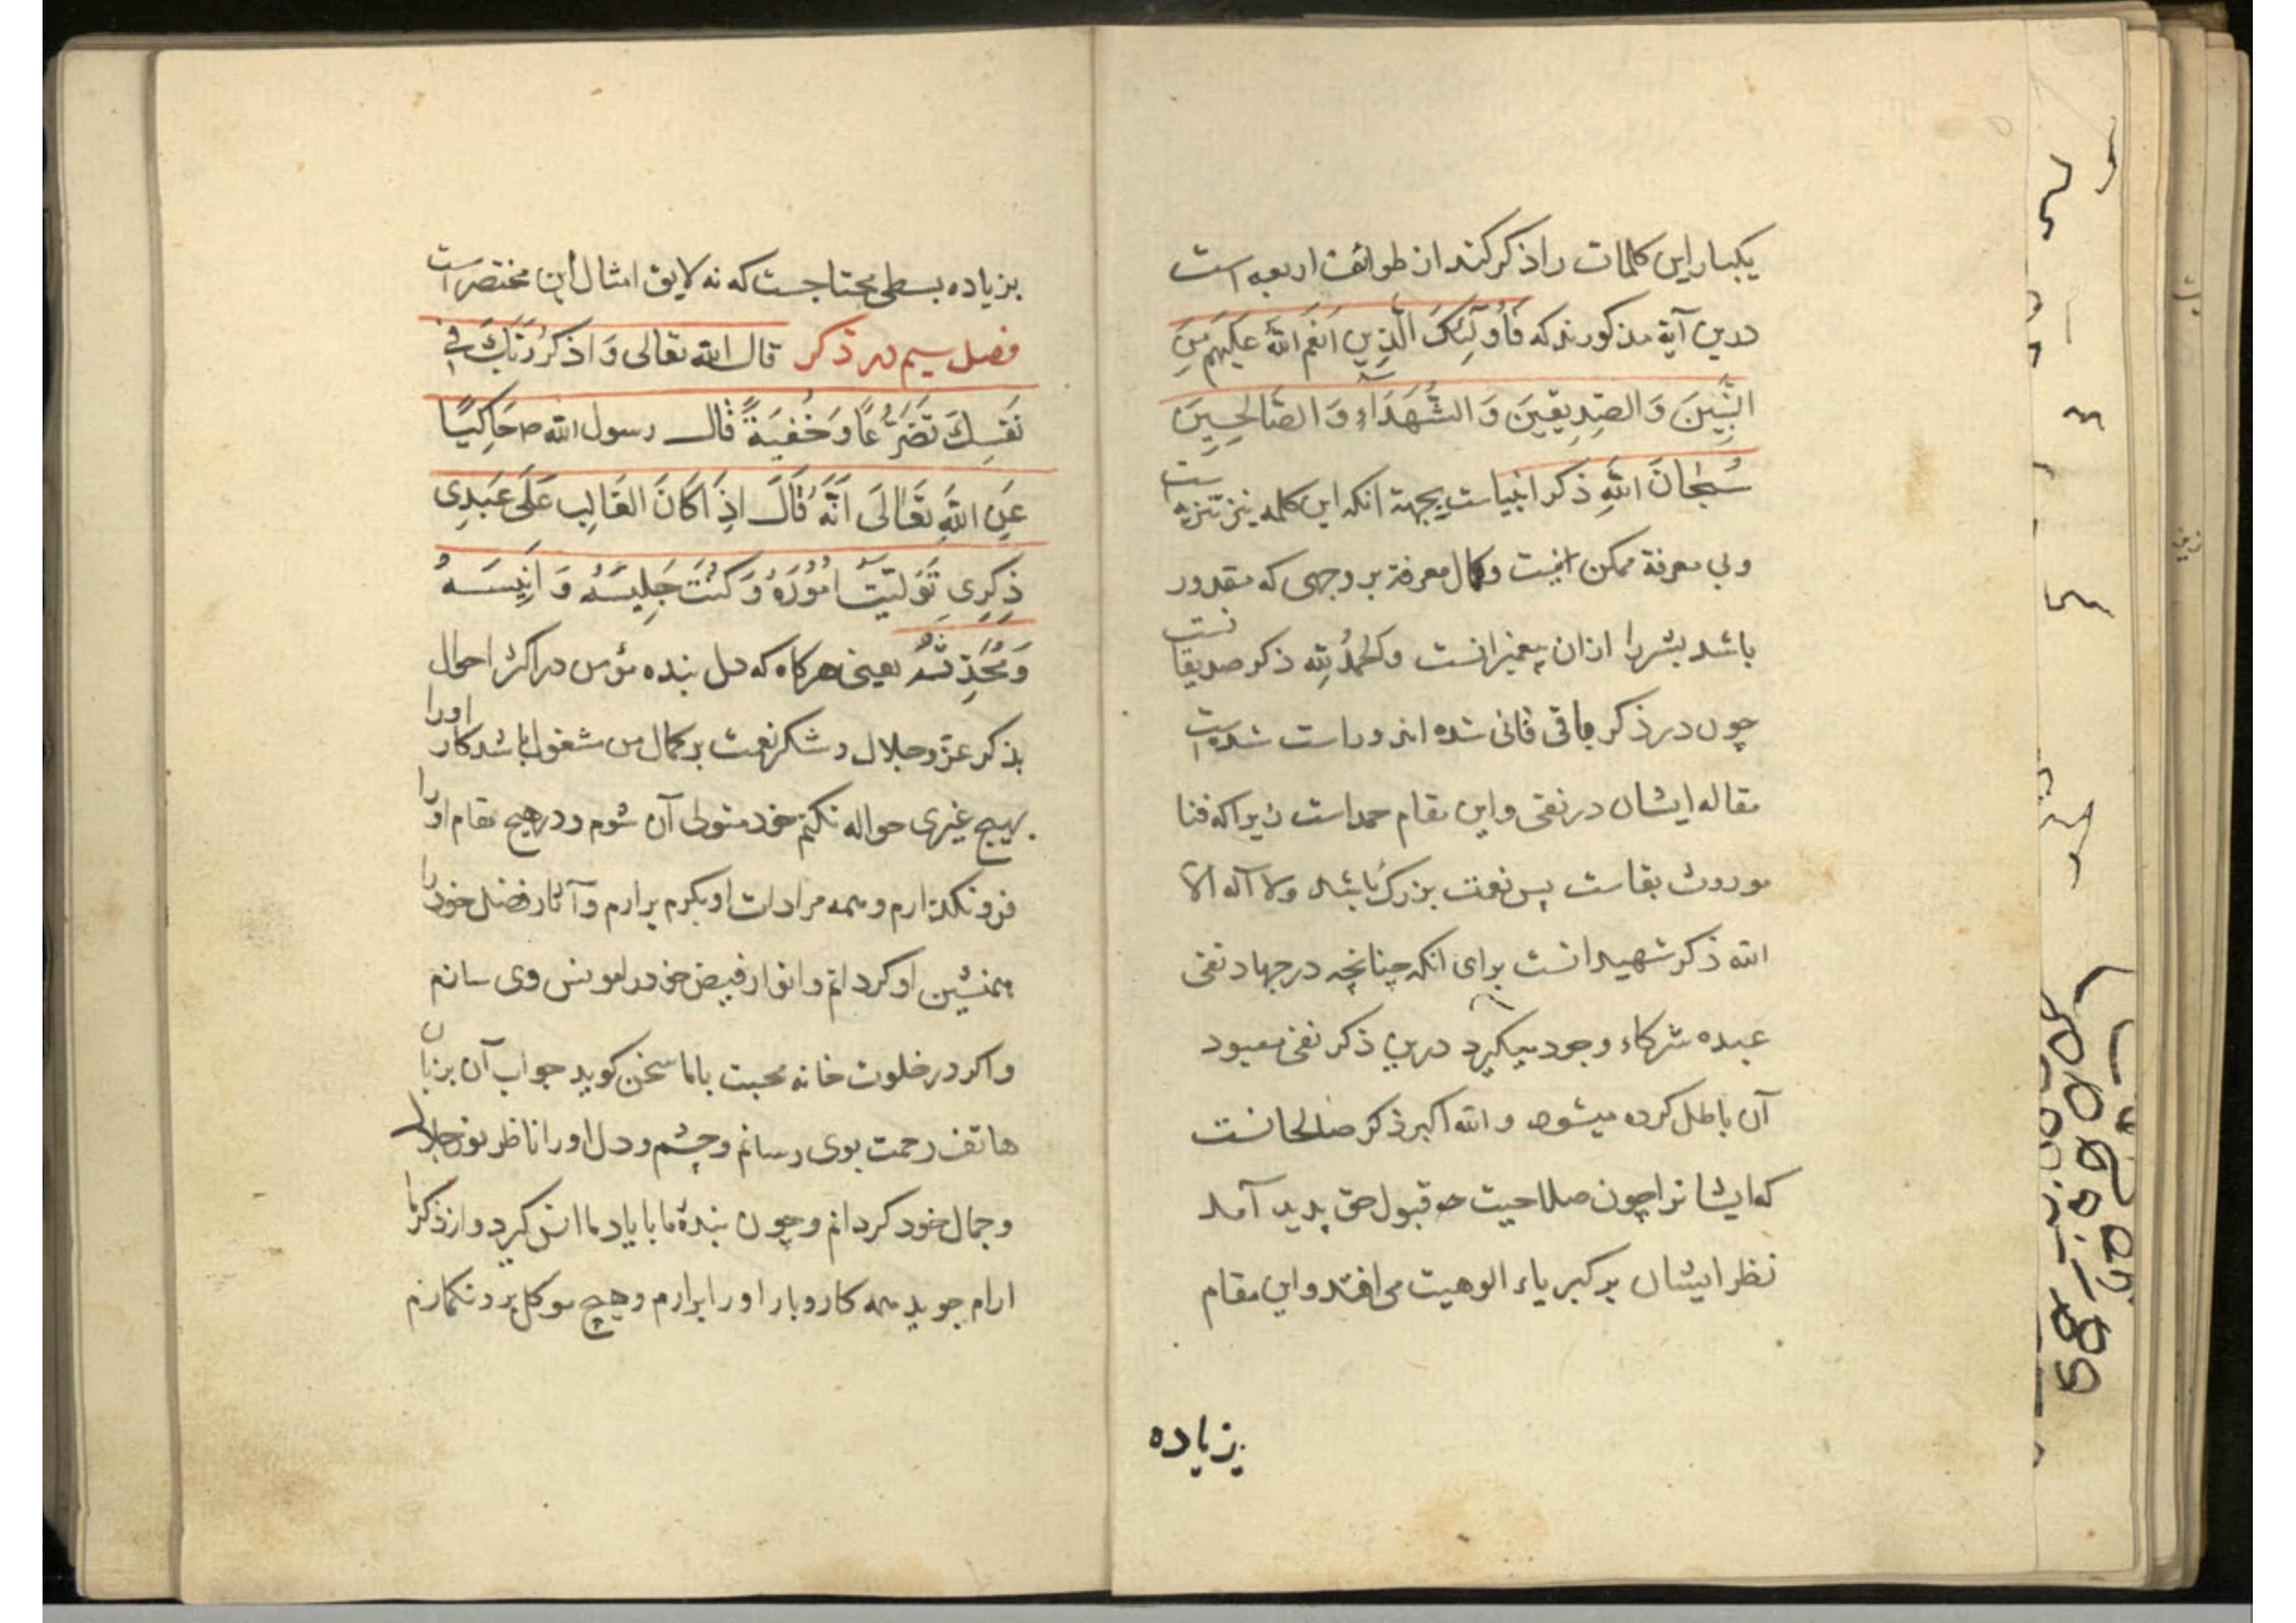 یکبار این کلمات را ذکر کند از طوائف اربعه است
درین آیة مذکورند که فَأُولَٰئِكَ الَّذِينَ اَنْعَمَ اللّٰهُ عَلَيْهِمْ مِنَ
النَّبِيِّنَ وَ الصِّدِيقِينَ وَ الشُّهَدَاءِ وَ الصَّالِحِينَ
سُبْحَانَ اللّٰهِ ذکر انبیاست بجهة انکه این کلمه نیز تنزیه ست
و بی معرفة ممکن نیست و کمال معرفة بر وجهی که مقدور
باشد بشر را ازان پیغمبرانست و الحمدُ لِلّه ذکر صدیقانست
چون در ذکر باقی فانی شده اند و راست شده است
مقاله ایشان در نفی و این مقام حمد است زیرا که فنا
موروث بقاست پس نعمت بزرک باشد و لا آله الا
الله ذکر شهیدانست برای انکه چنانچه در جهاد نفی
عبده شرکاء وجود میکیرد درین ذکر نفی معبود
آن باطل کرده میشود و الله اکبر ذکر صالحانست
که ایشانرا چون صلاحیت قبول حق پدید آمد
نظر ایشان بر کبریاء الوهیت می افتد و این مقام
بزیاده
بزیاده بسطی محتاجست که نه لایق امثال این مختصر است
فصل سیم در ذکر قال الله تعالی وَ اذْكُرْ رَبَّكَ فِي
نَفْسِكَ تَضَرُّعًا وَ خُفْيَةً قال رسول الله ص حَاكِيًا
عَنِ اللّٰهِ تَعَالَى اَنَّهُ قَالَ اِذَا كَانَ الغَالِبِ عَلَى عَبْدِى
ذِكْرِى تَوَلَّيْتُ اُمُورَهُ وَ كُنْتُ جَلِيسَهُ وَ اَنِيسَهُ
وَ مُحَدِّثَهُ یعنی هرکاه که دل بنده مؤمن در اکثر احوال
بذکر عز و جلال و شکر نعمت بر کمال من مشغول باشد کار او را
بهیچ غیری حواله نکنم خود متولی آن شوم و در هیچ مقام او را
فرو نکذارم و همه مرادات او بکرم برارم و آثار فضل خود را
همنشین او کردانم و انوار فیض خود را مونس وی سازم
و اکر در خلوت خانه محبت با ما سخن کوید جواب آن بزبان
هاتف رحمت بوی رسانم و چشم و دل او را ناظر بنور جلال
و جمال خود کردانم و چون بندهٔ ما با یاد ما انس کیرد و از ذکر ما
ارام جوید همه کار و بار او را برارم و هیچ موکل برو نکمارم